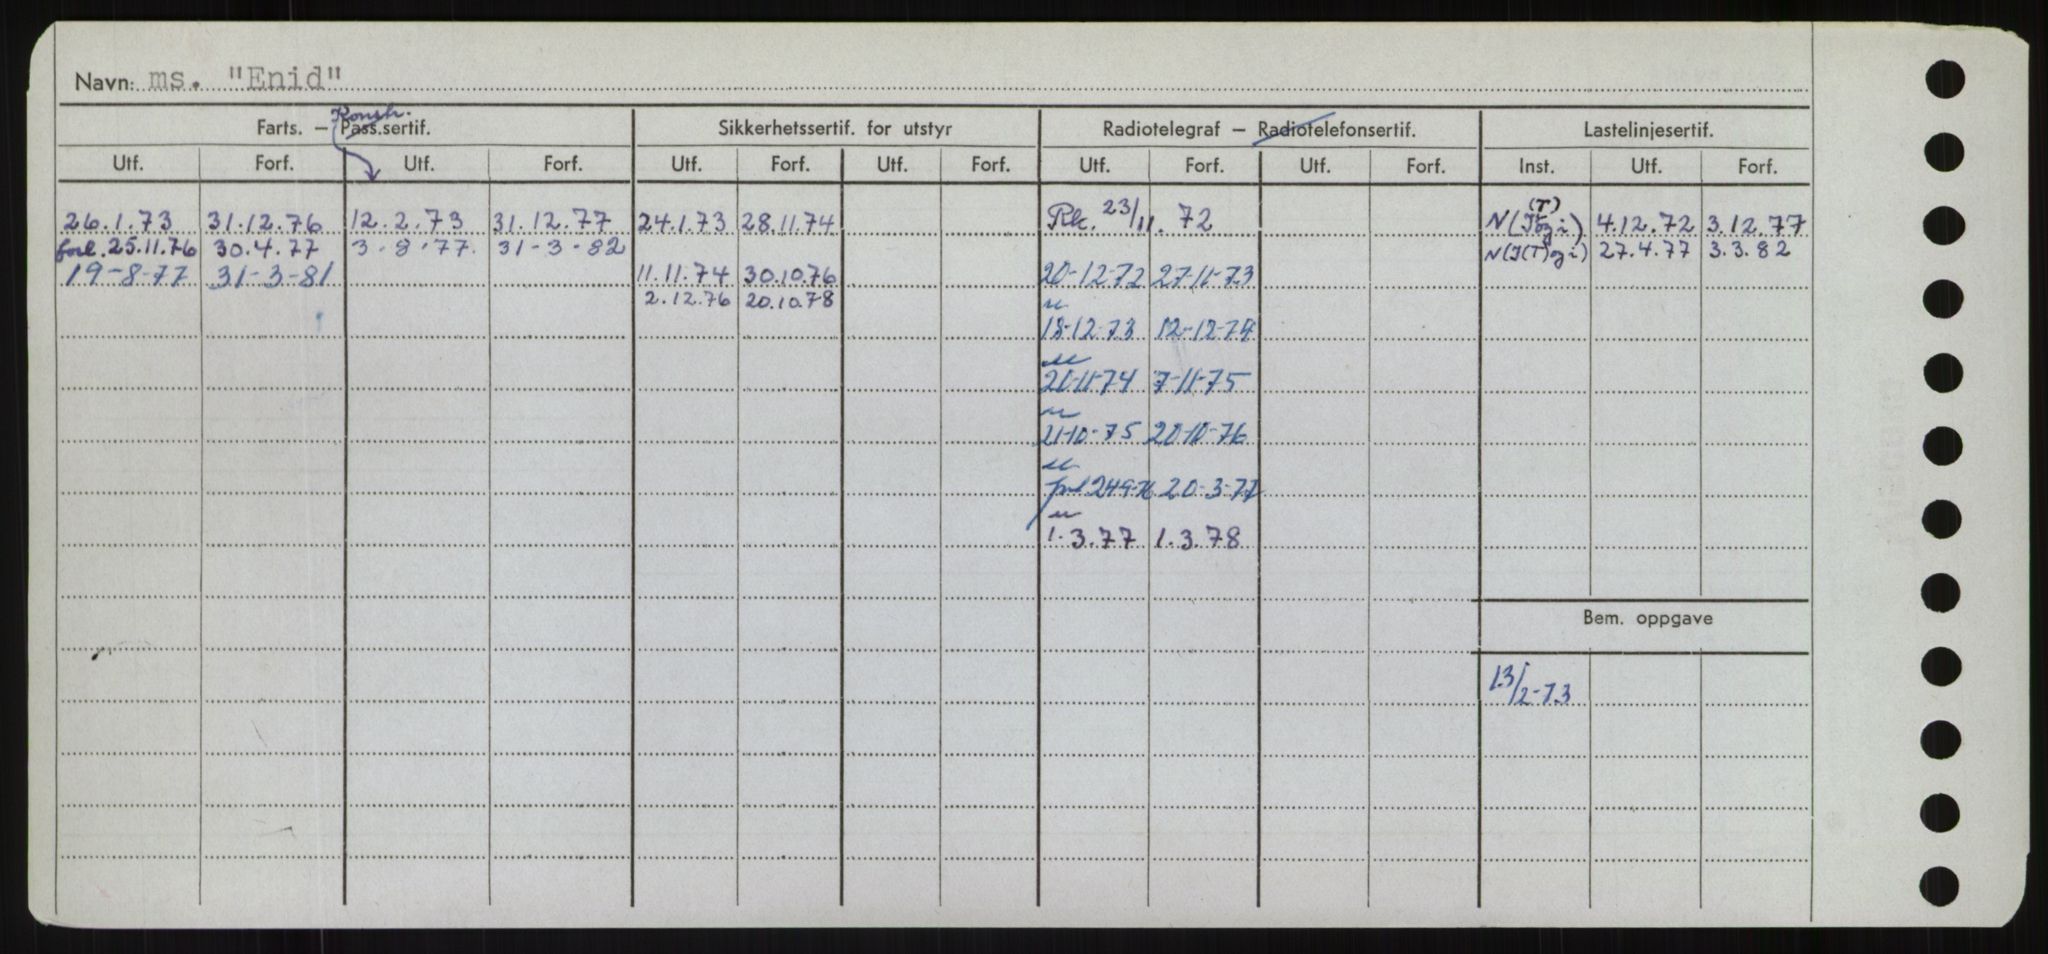 Navn: ms. "Enid"
Konstr.
Farts. — Pass.sertif. Sikkerhetssertif. for utstyr Radiotelegraf — Radiotelefonsertif. Lastelinjesertif.
Utf. Forf. Utf. Forf. Utf. Forf. Utf. Forf. Utf. Forf. Utf. Forf. Inst. Utf. Forf.
(T)
26.1.73 31.12.76 12.2.73 31.12.77 24.1.73 28.11.74 Rk. 23/11.72 N(I og i) 4.12.72 3.12.77
forl. 25.11.76 30.4.77 3-8-77. 31-3-82 N(I(T) og i) 27.4.77 3.3.82
19-8-77 31-3-81 11.11.74 30.10.76 20-12-72 27-11-73
2.12.76 20.10.78 "
13-12-73 12-12-74
"
21-11-74 7-11-75
"
21-10-75 20-10-76
"
forl 24-9-76 20-3-77
"
1.3.77 1.3.78
Bem. oppgave
13/2-73